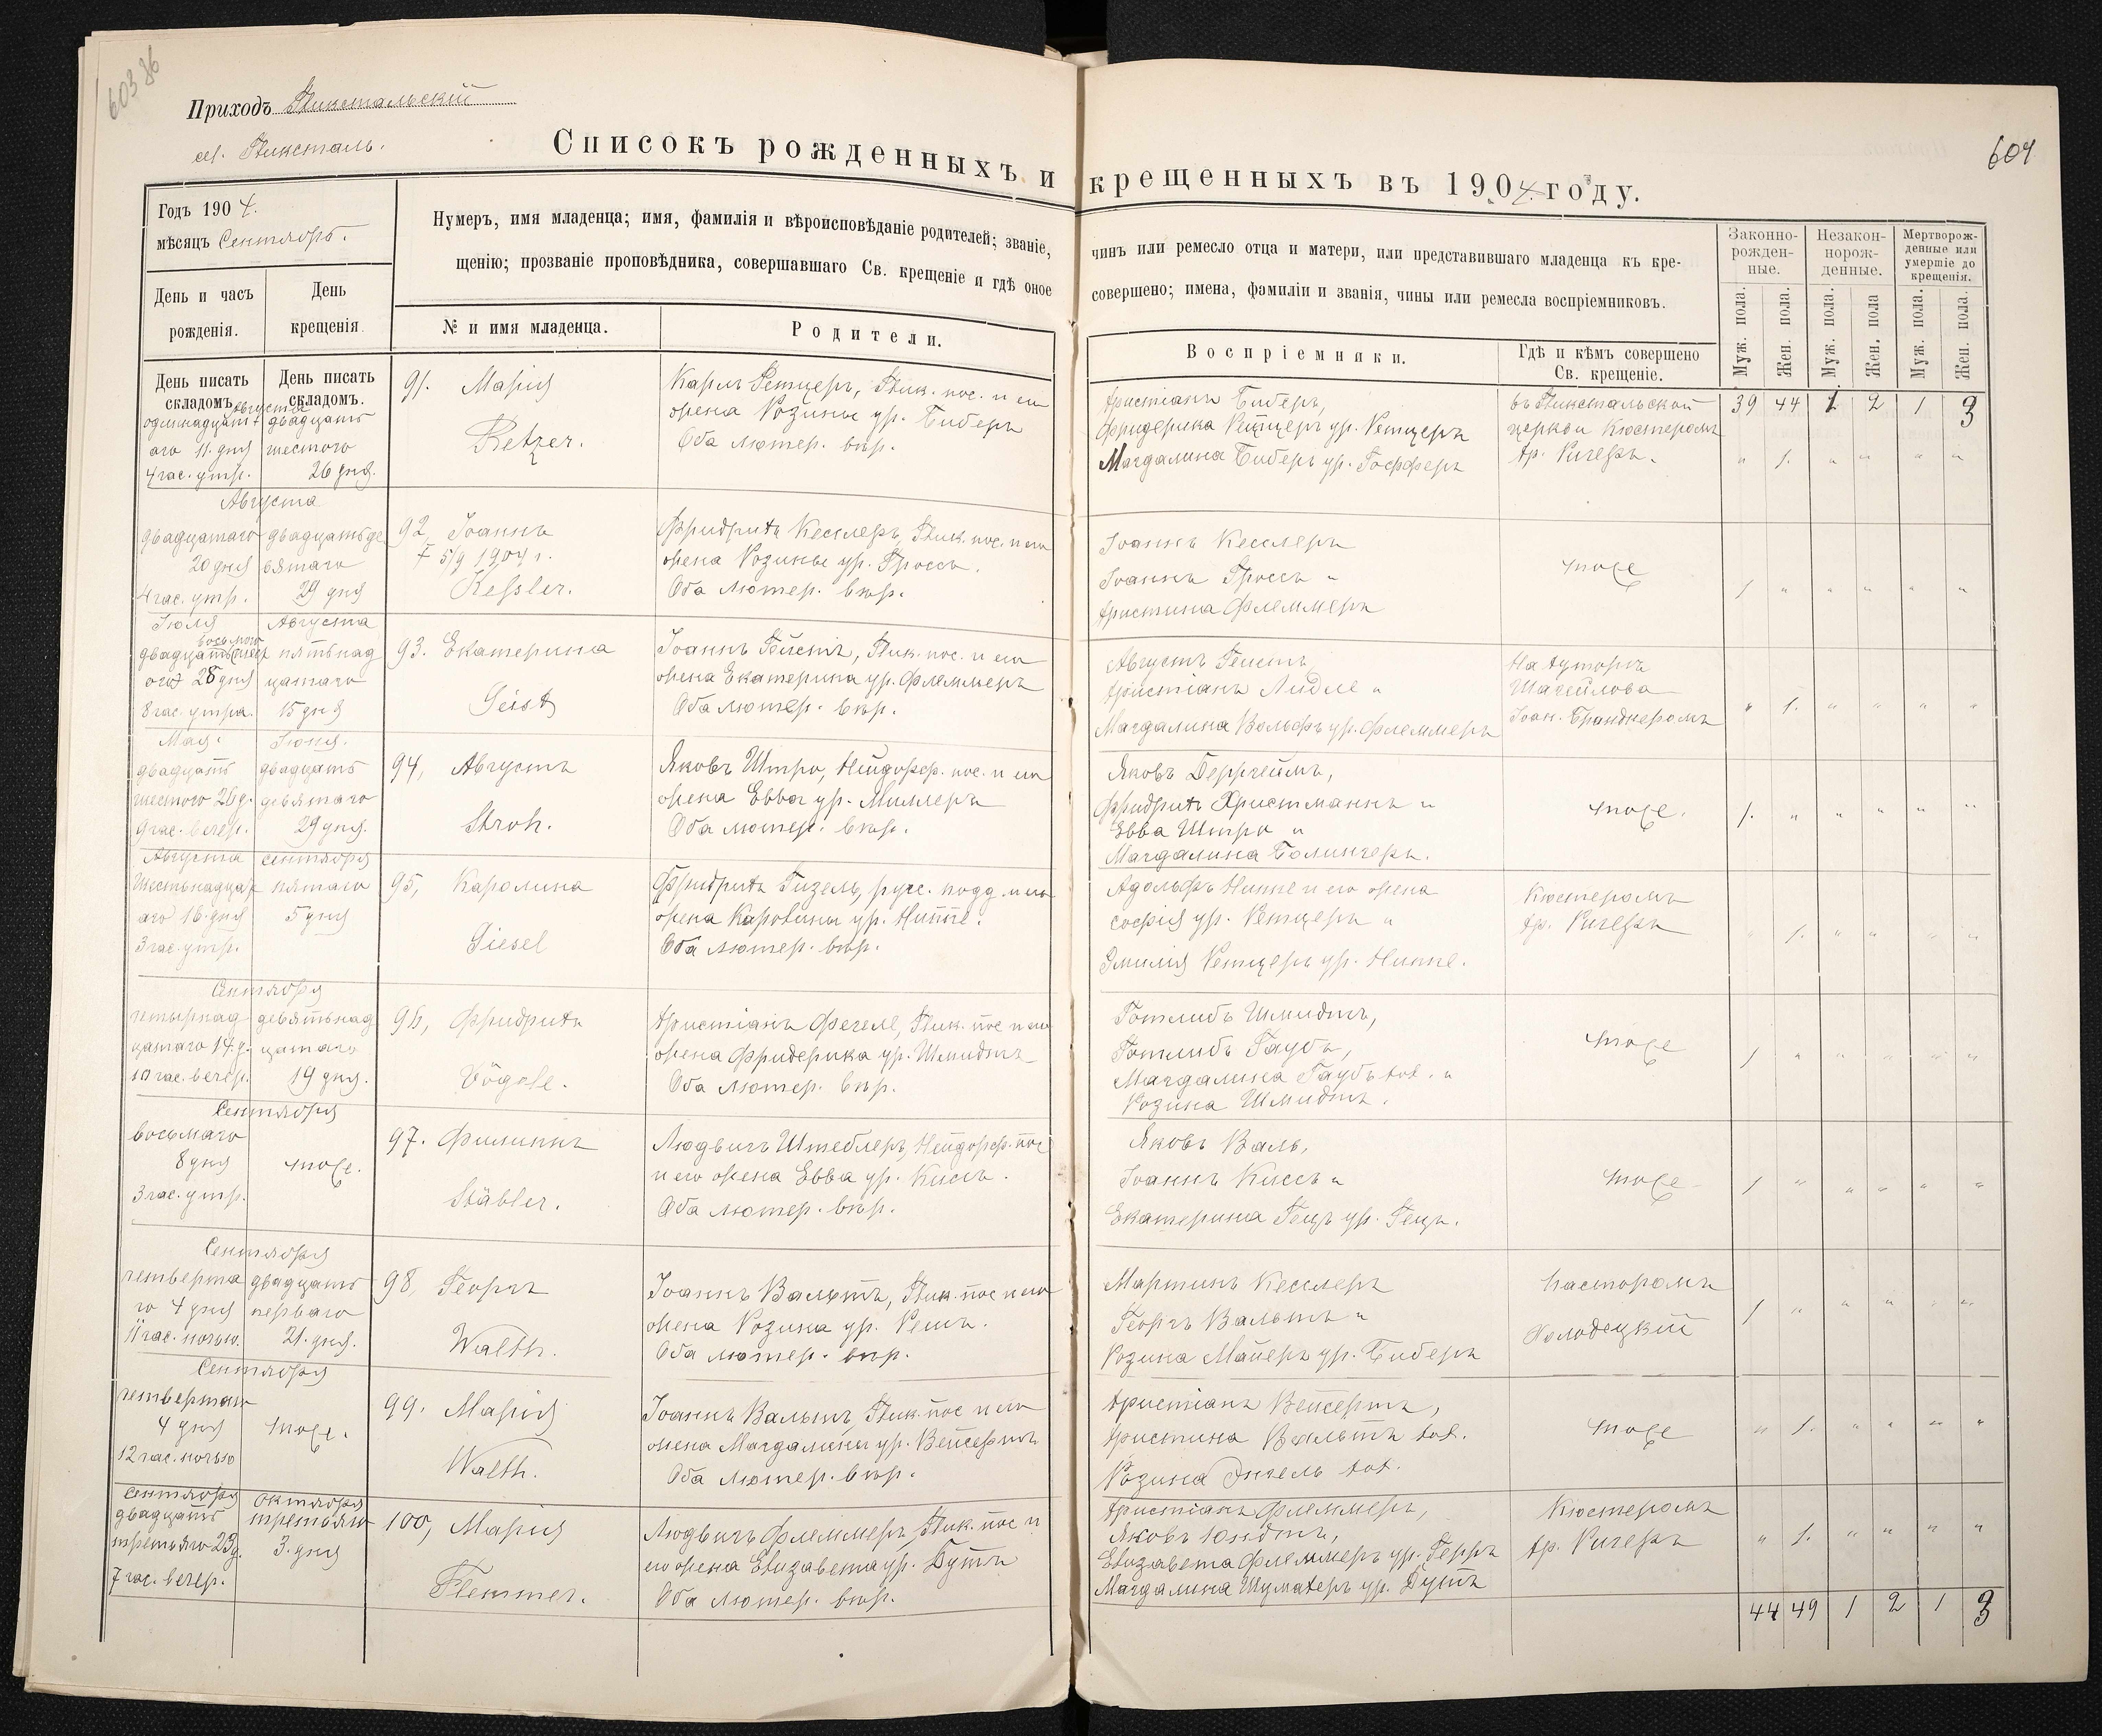 603 86
Приходъ Гликстальскій
сел. Гликсталь.
604
Списокъ рожденныхъ и крещенныхъ въ 1904 году.
Годъ 1904.
мѣсяцъ Сентябрь.
День и часъ рожденія.
День крещенія
Нумеръ, имя младенца; имя, фамилія и вѣроисповѣданіе родителей; званіе, чинъ или ремесло отца и матери, или представившаго младенца къ кре-
щенію; прозваніе проповѣдника, совершавшаго Св. крещеніе и гдѣ оное совершено; имена, фамиліи и званія, чины или ремесла воспріемниковъ.
№ и имя младенца.
Родители.
Воспріемники.
Гдѣ и кѣмъ совершено
Св. крещеніе.
Законно-
рожден-
ные.
Незакон-
норож-
денные.
Мертворож-
денные или
умершіе до
крещенія.
Муж. пола.
Жен. пола.
Муж. пола.
Жен. пола
Муж. пола.
Жен. пола.
День писать
складомъ.
День писать
складомъ.
39 44 1 2 1 3
Августа
одиннадцат
аго 11. дня
4 час. утр.
двадцать
шестого
26 дня.
91. Марія
Retzer.
Карлъ Ретцеръ, Глик. пос. и его
жена Розина ур. Биберъ
Оба лютер. вѣр.
Христіанъ Биберъ,
Фридерика Ретцеръ ур. Ретцеръ
Магдалина Биберъ ур. Гофферъ
въ Гликстальской
церкви Кюстеромъ
Хр. Ригеръ.
" 1. " " " "
Августа
двадцатаго
20 дня
4 час. утр.
двадцать де
вятаго
29 дня
92 Іоаннъ
† 5/9 1904 г.
Kessler.
Фридрихъ Кесслеръ, Глик. пос. и его
жена Розина ур. Гроссъ.
Оба лютер. вѣр.
Іоаннъ Кесслеръ
Іоаннъ Гроссъ и
Христина Флеммеръ
тоже
1 " " " " "
Іюля
восьмого
двадцать
28 дня
8 час. утра.
Августа
пятьнад
цатаго
15 дня
93. Екатерина
Geist
Іоаннъ Гейстъ, Глик. пос. и его
жена Екатерина ур. Флеммеръ
Оба лютер. вѣр.
Августъ Гейстъ
Христіанъ Лидле и
Магдалина Вольфъ ур. Флеммеръ
На хуторѣ
Шагейлова
Іоан. Бранднеромъ
" 1. " " " "
Мая.
двадцать
шестого 26 д.
9 час. вечер.
Іюня.
двадцать
девятаго
29 дня.
94, Августъ
Stroh.
Яковъ Штро, Нейдорф. пос. и его
жена Евва ур. Миллеръ
Оба лютер. вѣр.
Яковъ Дерргеймъ,
Фридрихъ Христманнъ и
Евва Штро и
Магдалина Болингеръ.
тоже.
1. " " " " "
Августа
Шестьнадцат
аго 16. дня
3 час. утр.
Сентября
пятаго
5 дня
95, Каролина
Giesel
Фридрихъ Гизель, русс. подд. и его
жена Каролина ур. Ниппе.
Оба лютер. вѣр.
Адольфъ Ниппе и его жена
Софія ур. Ретцеръ и
Эмилія Ретцеръ ур. Ниппе.
Кюстеромъ
Хр. Ригеръ
" 1. " " " "
Сентября
четырнад
цатаго 14. д.
10 час. вечер.
девятьнад
цатаго
19 дня.
96, Фридрихъ
Vögele.
Христіанъ Фегеле, Глик. пос и его
жена Фридерика ур. Шмидтъ
Оба лютер. вѣр.
Готлибъ Шмидтъ,
Готлибъ Гаубъ,
Магдалина Гаубъ хол. и
Розина Шмидтъ.
тоже
1 " " " " "
Сентября
восьмаго
8 дня
3 час. утр.
тоже.
97. Филиппъ
Stäbler.
Людвигъ Штеблеръ, Нейдорф. пос
и его жена Евва ур. Киссъ.
Оба лютер. вѣр.
Яковъ Валь,
Іоаннъ Киссъ и
Екатерина Гецъ ур. Гецъ.
тоже
1 " " " " "
Сентября
четверта
го 4 дня
11 час. ночью.
двадцать
перваго
21. дня.
98, Георгъ
Walth.
Іоаннъ Вальтъ, Глик. пос и его
жена Розина ур. Решъ.
Оба лютер. вѣр.
Мартинъ Кесслеръ
Георгъ Вальтъ и
Розина Майеръ ур. Биберъ
Пасторомъ
Холодецкій
1 " " " " "
Сентября
четвертаго
4 дня
12 час. ночью
тоже.
99. Марія
Walth.
Іоаннъ Вальтъ, Глик. пос и его
жена Магдалина ур. Вейсертъ
Оба лютер. вѣр.
Христіанъ Вейсертъ,
Христина Вальтъ хол.
Розина Энгель хол.
тоже
" 1. " " " "
Сентября
двадцать
третьяго 23 д.
7 час. вечер.
Октября
третьяго
3. дня
100, Марія
Flemmer.
Людвигъ Флеммеръ, Глик. пос и
его жена Елизавета ур. Бутъ
Оба лютер. вѣр.
Христіанъ Флеммеръ,
Яковъ Юндтъ,
Елизавета Флеммеръ ур. Герръ
Магдалина Шумахеръ ур. Бутъ
Кюстеромъ
Хр. Ригеръ
" 1. " " " "
44 49 1 2 1 3